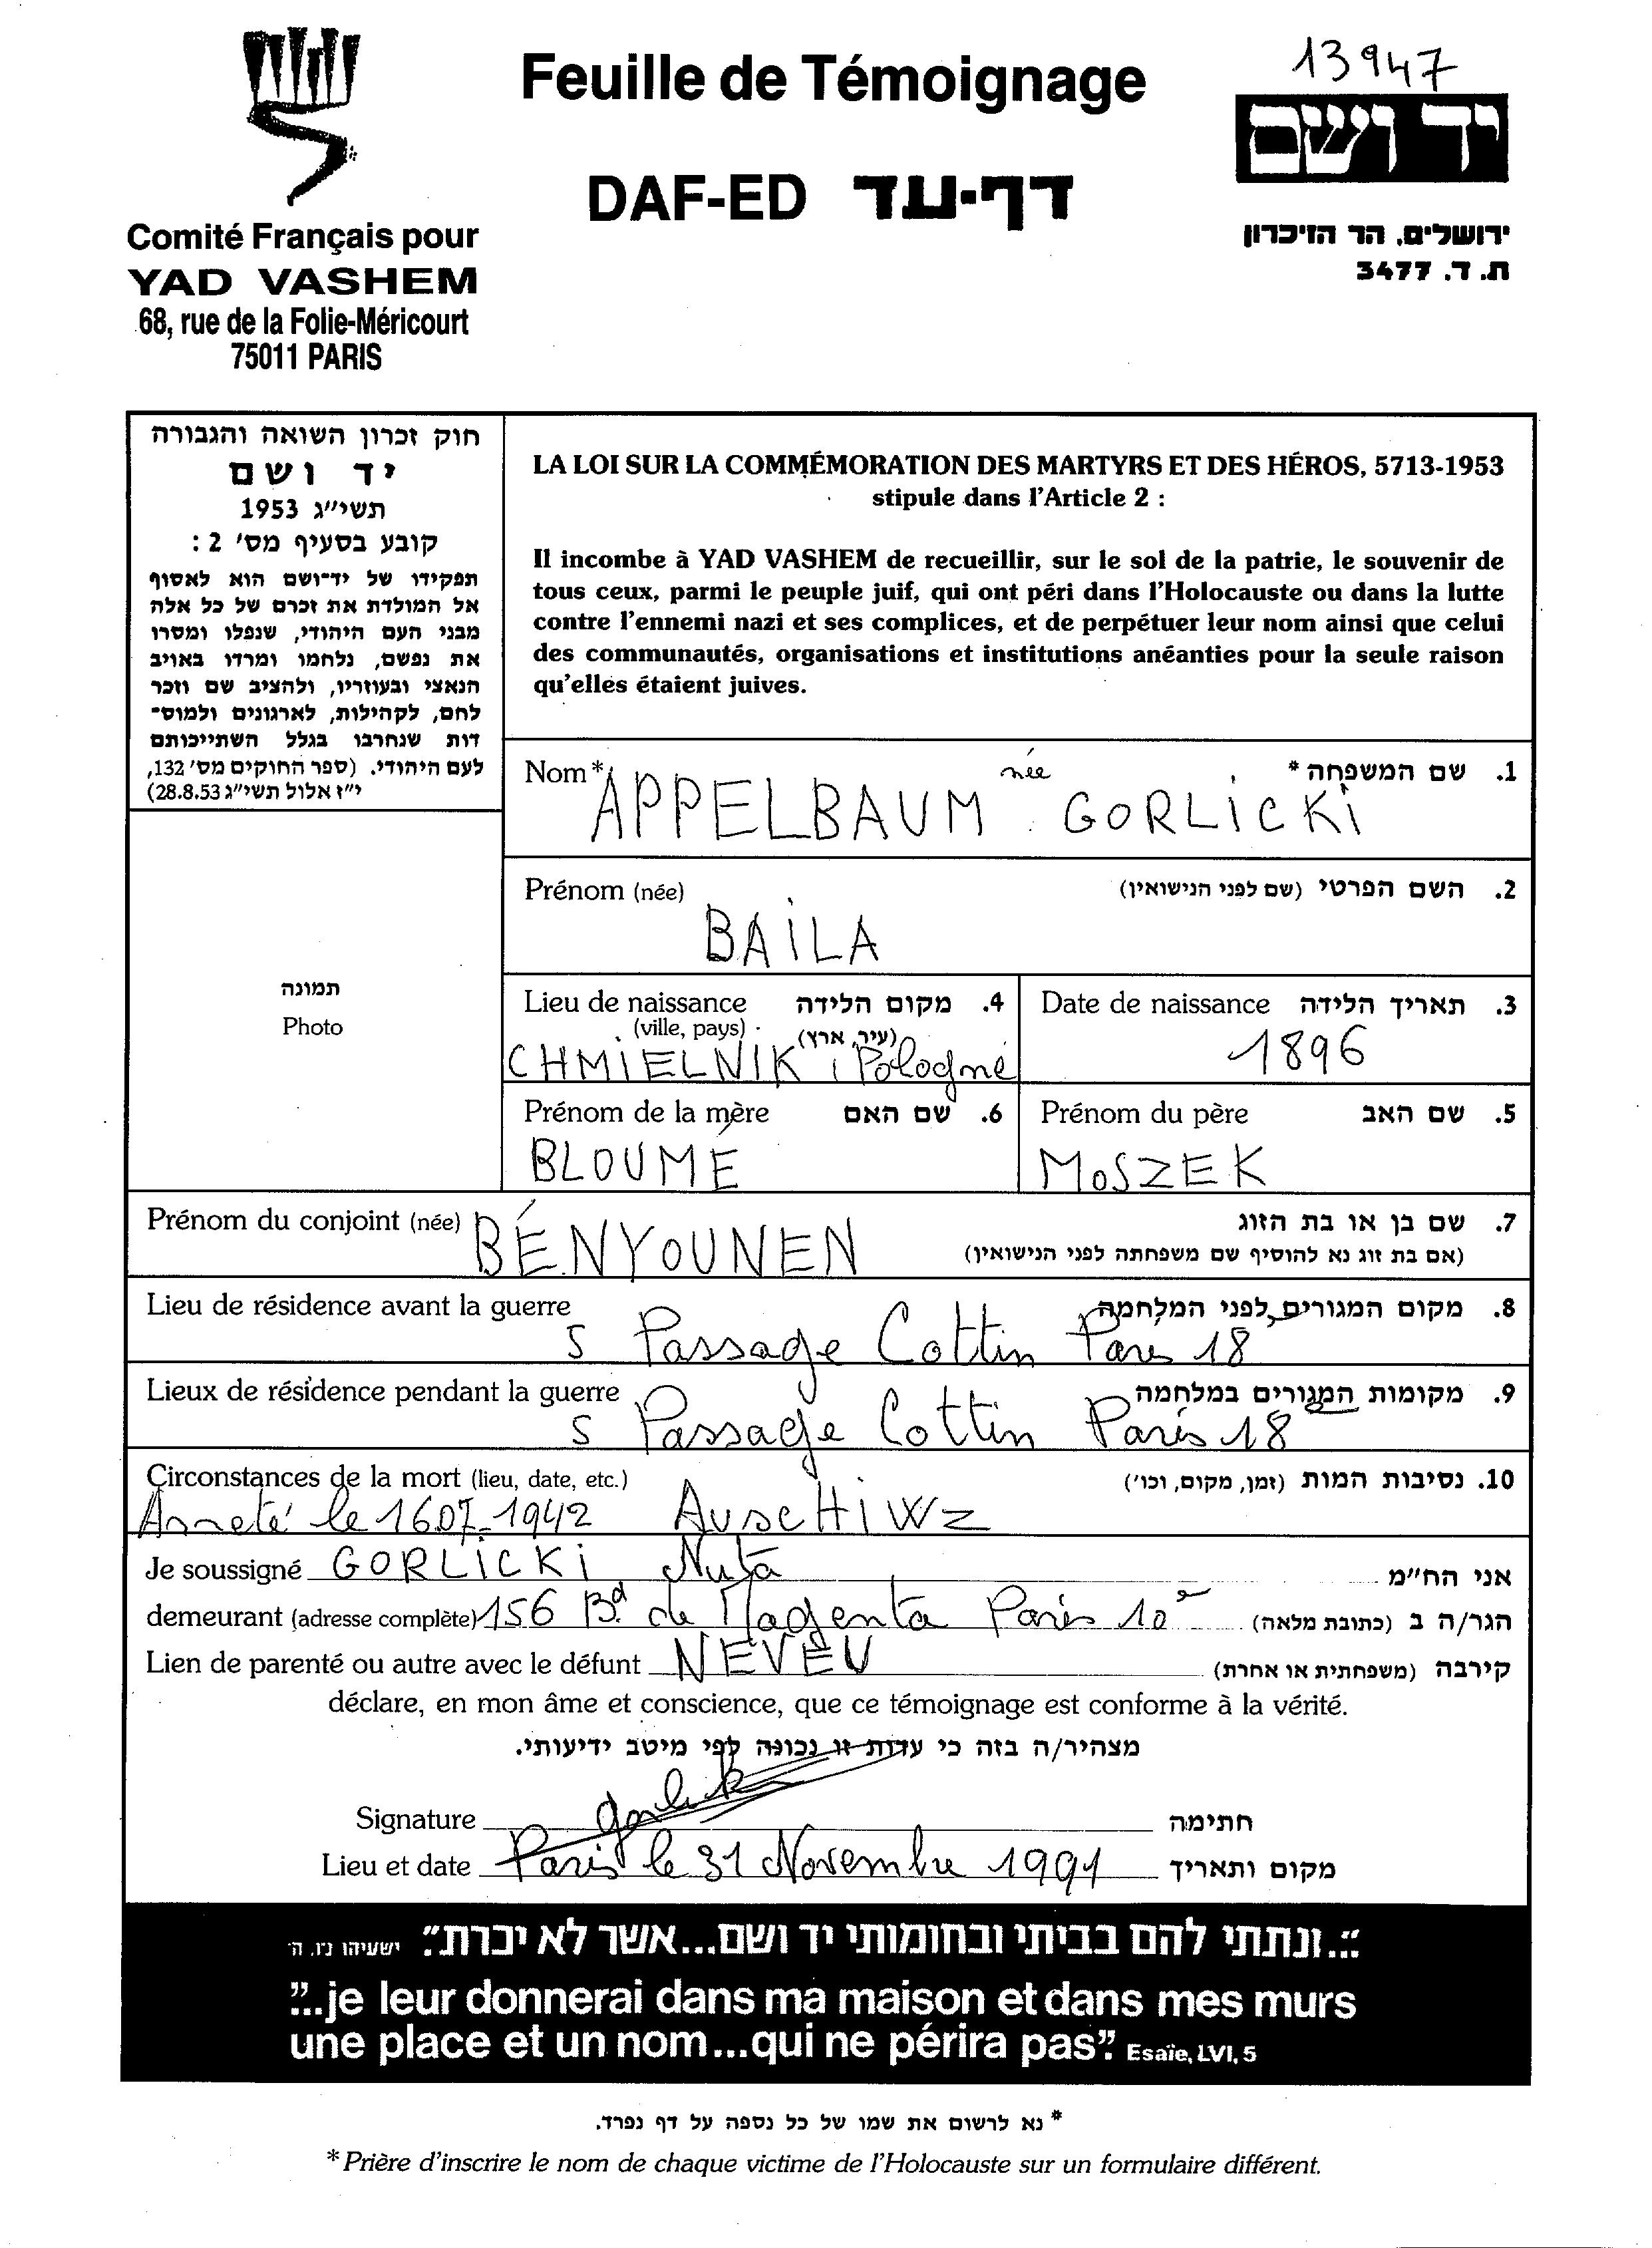 Feuille de Témoignage
13947
DAF-ED דף-עד
יד ושם
Comité Français pour
YAD VASHEM
68, rue de la Folie-Méricourt
75011 PARIS
ירושלים, הר הזיכרון
ת. ד. 3477
חוק זכרון השואה והגבורה
יד ושם
תשי״ג 1953
קובע בסעיף מס׳ 2 :
תפקידו של יד־ושם הוא לאסוף
אל המולדת את זכרם של כל אלה
מבני העם היהודי, שנפלו ומסרו
את נפשם, נלחמו ומרדו באויב
הנאצי ובעוזריו, ולהציב שם וזכר
להם, לקהילות, לארגונים ולמוס־
דות שנחרבו בגלל השתייכותם
לעם היהודי. (ספר החוקים מס׳ 132,
י״ז אלול תשי״ג 28.8.53)
LA LOI SUR LA COMMÉMORATION DES MARTYRS ET DES HÉROS, 5713-1953
stipule dans l'Article 2 :
Il incombe à YAD VASHEM de recueillir, sur le sol de la patrie, le souvenir de
tous ceux, parmi le peuple juif, qui ont péri dans l'Holocauste ou dans la lutte
contre l'ennemi nazi et ses complices, et de perpétuer leur nom ainsi que celui
des communautés, organisations et institutions anéanties pour la seule raison
qu'elles étaient juives.
Nom* 1. שם המשפחה *
APPELBAUM née GORLICKI
Prénom (née) 2. השם הפרטי (שם לפני הנישואין)
BAILA
תמונה
Photo
Lieu de naissance 4. מקום הלידה
(ville, pays) (עיר, ארץ)
CHMIELNIK Pologne
Date de naissance 3. תאריך הלידה
1896
Prénom de la mère 6. שם האם
BLOUMÉ
Prénom du père 5. שם האב
MOSZEK
Prénom du conjoint (née) 7. שם בן או בת הזוג
BÉNYOUNEN (אם בת זוג נא להוסיף שם משפחתה לפני הנישואין)
Lieu de résidence avant la guerre 8. מקום המגורים לפני המלחמה
5 Passage Cottin Paris 18
Lieux de résidence pendant la guerre 9. מקומות המגורים במלחמה
5 Passage Cottin Paris 18
Circonstances de la mort (lieu, date, etc.) 10. נסיבות המות (זמן, מקום, וכו׳)
Arreté le 16.07.1942 AuscHiWz
Je soussigné GORLICKI Nuta אני הח״מ
demeurant (adresse complète) 156 Bd de Magenta Paris 10e הגר/ה ב (כתובת מלאה)
Lien de parenté ou autre avec le défunt NEVEU קירבה (משפחתית או אחרת)
déclare, en mon âme et conscience, que ce témoignage est conforme à la vérité.
מצהיר/ה בזה כי עדות זו נכונה לפי מיטב ידיעותי.
Signature חתימה
Lieu et date Paris le 31 Novembre 1991 מקום ותאריך
״...ונתתי להם בביתי ובחומותי יד ושם...אשר לא יכרת״ ישעיהו נ״ו, ה׳
"...je leur donnerai dans ma maison et dans mes murs
une place et un nom...qui ne périra pas" Esaïe, LVI, 5
* נא לרשום את שמו של כל נספה על דף נפרד.
* Prière d'inscrire le nom de chaque victime de l'Holocauste sur un formulaire différent.